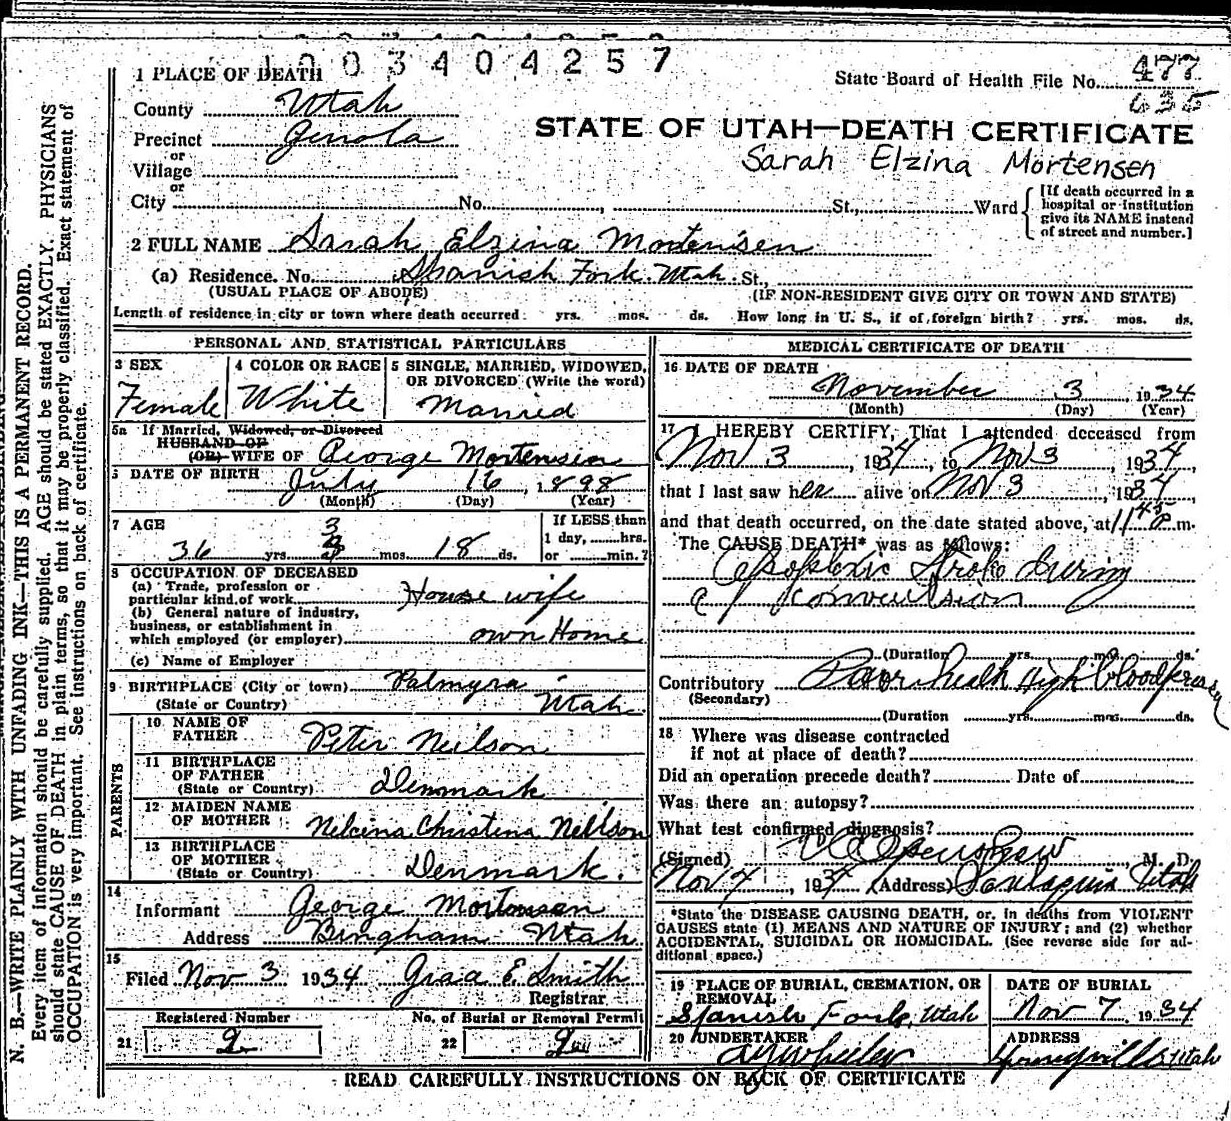 1003404257
State Board of Health File No. 477
635
1 PLACE OF DEATH
County Utah
Precinct Genola
or
Village
or
City No. , St., Ward
STATE OF UTAH—DEATH CERTIFICATE
Sarah Elzina Mortensen
[If death occurred in a
hospital or institution
give its NAME instead
of street and number.]
2 FULL NAME Sarah Elzina Mortensen
(a) Residence. No. Spanish Fork. Utah. St.,
(USUAL PLACE OF ABODE) (IF NON-RESIDENT GIVE CITY OR TOWN AND STATE)
Length of residence in city or town where death occurred yrs. mos. ds. How long in U. S., if of foreign birth? yrs. mos. ds.
PERSONAL AND STATISTICAL PARTICULARS
3 SEX
Female
4 COLOR OR RACE
White
5 SINGLE, MARRIED, WIDOWED,
OR DIVORCED (Write the word)
Married
5a If Married, Widowed, or Divorced
HUSBAND OF
(OR) WIFE OF George Mortensen
DATE OF BIRTH July 16, 1898
(Month) (Day) (Year)
7 AGE
36 yrs. 3 mos. 18 ds.
If LESS than
1 day, hrs.
or min.?
8 OCCUPATION OF DECEASED
(a) Trade, profession or
particular kind of work House wife
(b) General nature of industry,
business, or establishment in
which employed (or employer) own Home
(c) Name of Employer
9 BIRTHPLACE (City or town) Palmyra
(State or Country) Utah
PARENTS
10 NAME OF
FATHER Peter Neilson
11 BIRTHPLACE
OF FATHER
(State or Country) Denmark
12 MAIDEN NAME
OF MOTHER Nelcina Christina Neilson
13 BIRTHPLACE
OF MOTHER
(State or Country) Denmark.
14
Informant George Mortensen
Address Bingham Utah
15
Filed Nov 3 1934 Grace E. Smith
Registrar
Registered Number No. of Burial or Removal Permit
21 9 22 9
MEDICAL CERTIFICATE OF DEATH
16 DATE OF DEATH
November 3 1934
(Month) (Day) (Year)
17 I HEREBY CERTIFY, That I attended deceased from
Nov 3, 1934, to Nov 3, 1934,
that I last saw her alive on Nov 3, 1934
and that death occurred, on the date stated above, at 11 45 P.m.
The CAUSE DEATH* was as follows:
Apoplexic Stroke During
a convulsion
(Duration yrs. mos. ds.
Contributory Poor health High bloodpressure
(Secondary)
(Duration yrs. mos. ds.
18 Where was disease contracted
if not at place of death?
Did an operation precede death? Date of
Was there an autopsy?
What test confirmed diagnosis?
(Signed) Openshaw, M. D.
Nov 7, 1934 (Address) Santaquin Utah
*State the DISEASE CAUSING DEATH, or, in deaths from VIOLENT
CAUSES state (1) MEANS AND NATURE OF INJURY; and (2) whether
ACCIDENTAL, SUICIDAL OR HOMICIDAL. (See reverse side for ad-
ditional space.)
19 PLACE OF BURIAL, CREMATION, OR
REMOVAL
Spanish Fork, Utah
DATE OF BURIAL
Nov 7, 1934
20 UNDERTAKER
Wheeler
ADDRESS
Springville Utah
READ CAREFULLY INSTRUCTIONS ON BACK OF CERTIFICATE
N. B.—WRITE PLAINLY WITH UNFADING INK—THIS IS A PERMANENT RECORD.
Every item of information should be carefully supplied. AGE should be stated EXACTLY. PHYSICIANS
should state CAUSE OF DEATH in plain terms, so that it may be properly classified. Exact statement of
OCCUPATION is very important. See instructions on back of certificate.